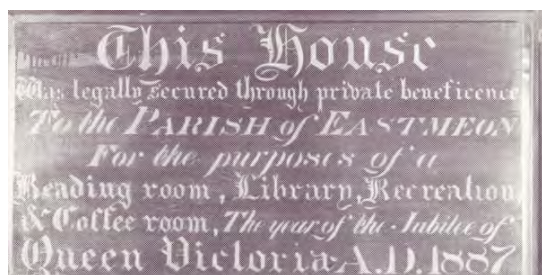 This House
Was legally secured through private beneficence
To the PARISH of EASTMEON
For the purposes of a
Reading room, Library, Recreation
& Coffee room, The year of the Jubilee of
Queen Victoria A.D. 1887